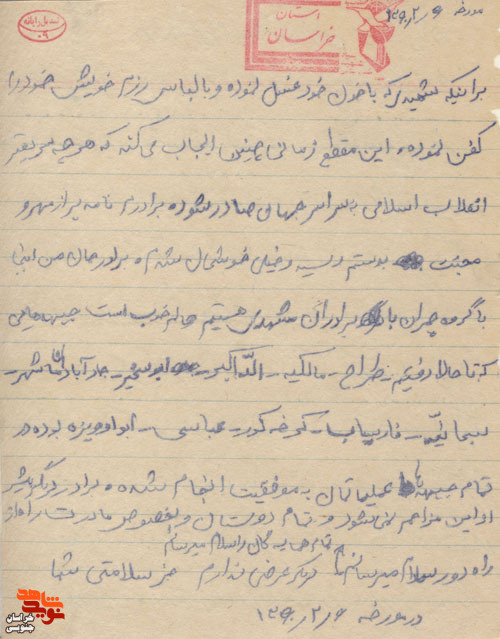 مورخه ۱۳۶۰/۲/۶
تبدیل رایانه
۰۹
استان
خراسان
برانیکه شهیدی که با خون خود غسل نموده و با لباس رزم خویش خود را
کفن نموده و این مقطع زمانی چنین ایجاب می‌کند که هر چه سریعتر
انقلاب اسلامی به سراسر جهان صادر شود برادرم نامه پر از مهر و
محبت بدستم رسید و خیلی خوشحال شدم برادر جان من اینجا
با گروه چمران با برادران مشهدی هستیم حالم خوب است جبهه‌هایی
که تا حالا رفتیم - طراح - مالکیه - الله اکبر - جلال آباد شهر -
سبحانیه - فارسیات - کرخه کور - عباسی - ابوحمیزه بوده در
تمام جبهه‌ها عملیاتمان به موفقیت انجام شده و برادر دیگر بیشتر
از این مزاحم نمی‌شود و تمام دوستان و بخصوص مادرت را از
و تمام همسایه‌گان را سلام میرسانم
راه دور سلام میرسانم دیگر عرضی ندارم جز سلامتی شما
در مورخه ۱۳۶۰/۲/۶
شاهد
نوید
خراسان
جنوبی